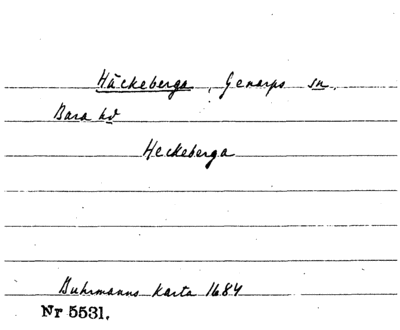 Häckeberga, Genarps sn.
Bara hd
Heckeberga
Buhrmanns karta 1684
Nr 5531.